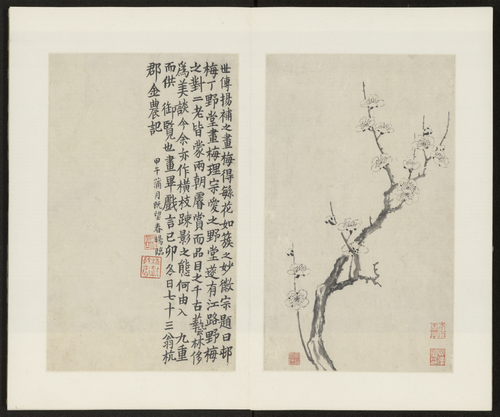 世傳揚補之畫梅得繁花如簇之妙徽宗題曰邨
梅丁野堂畫梅理宗愛之野堂遂有江路野梅
之對二老皆蒙兩朝睿賞而品目之千古藝林侈
為美談今余亦作橫枝疎影之態何由入 九重
而供 御覽也畫畢戲言己卯冬日七十三翁杭
郡金農記
甲午蒲月既望春暘臨